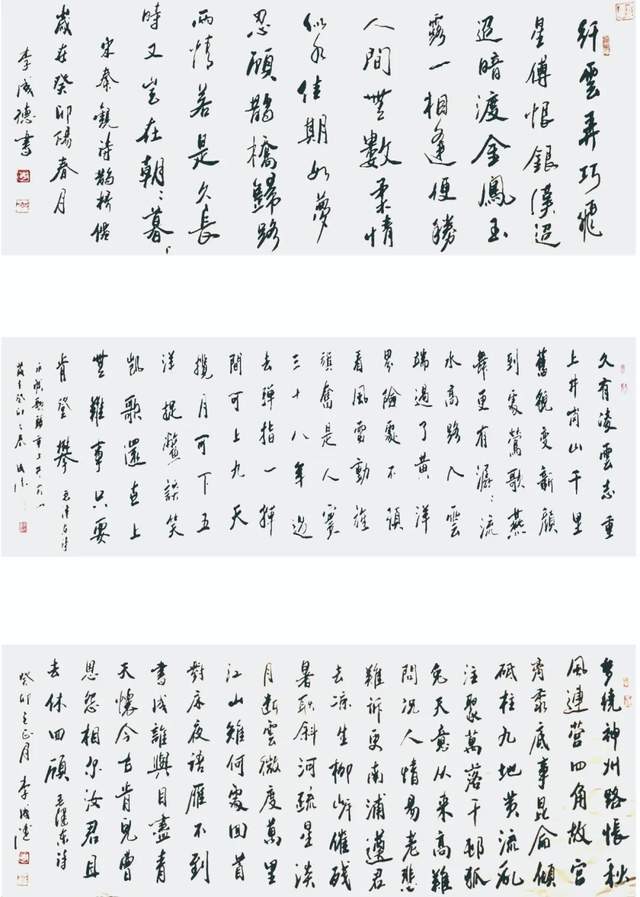 纤雲弄巧飛
星傳恨銀漢迢
迢暗渡金鳳玉
露一相逢便勝
人間無數柔情
似水佳期如夢
忍顧鵲橋歸路
兩情若是久長
時又豈在朝々暮々
宋秦觀詩鵲橋仙
歲在癸卯陽春月
李成德書
久有凌雲志重
上井岡山千里
舊貌變新顏
到處鶯歌燕
舞更有潺々流
水高路入雲
端過了黃洋
界險處不須
看風雷動旌
旗奮是人寰
三十八年過
去彈指一揮
間可上九天
攬月可下五
洋捉鱉談笑
凱歌還世上
無難事只要
肯登攀 毛澤東詩
水調歌頭重上井岡山
歲在癸卯之春 成德
夢繞神州路悵秋
風連營画角故宮
離黍底事昆侖傾
砥柱九地黃流亂
注聚萬落千邨狐
兔天意从來高難
問況人情易老悲
難訴更南浦送君
去涼生柳岸催殘
暑耿斜河疏星淡
月斷雲微度萬里
江山知何處回首
對床夜語雁不到
書成誰與目盡青
天懷今古肯兒曹
恩怨相尔汝君且
去休回顧 毛澤東詩
癸卯之正月 李成德